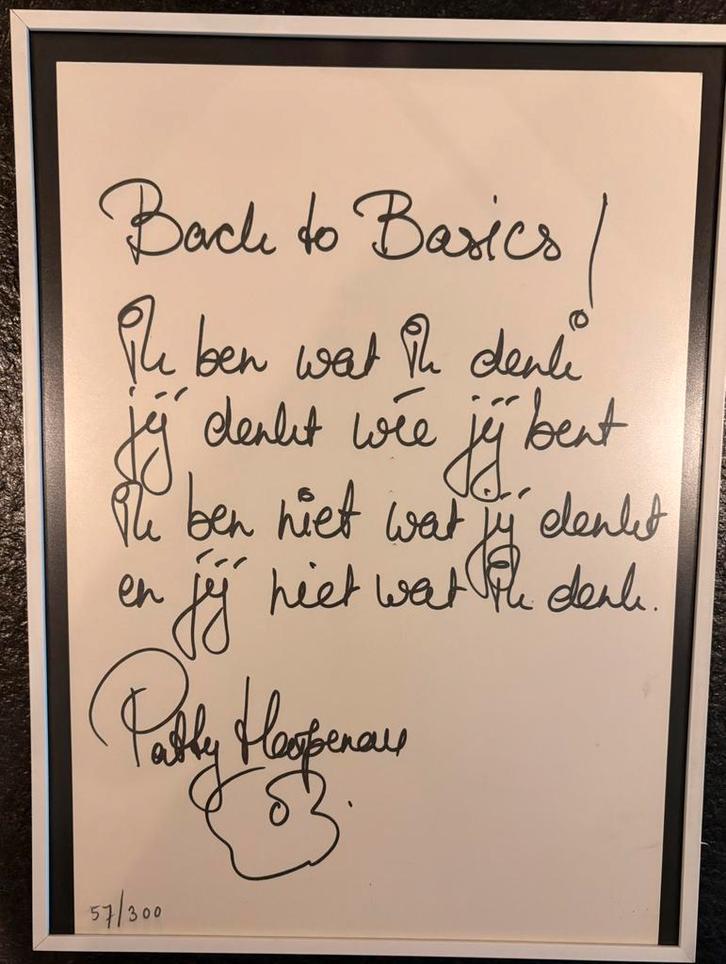 Back to Basics!
Ik ben wat ik denk
jij denkt wie jij bent
Ik ben niet wat jij denkt
en jij niet wat ik denk.
Patty Harpenau
57/300